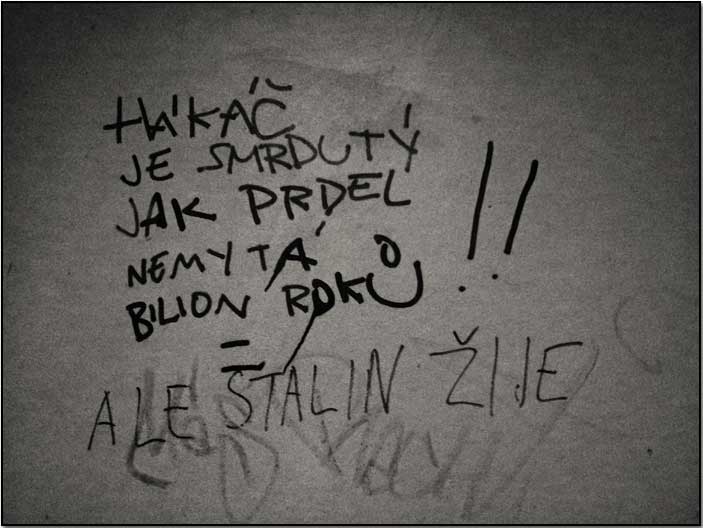 HÁKÁČ
JE SMRDUTÝ
JAK PRDEL
NEMYTÁ
BILION ROKŮ !!
ALE STALIN ŽIJE